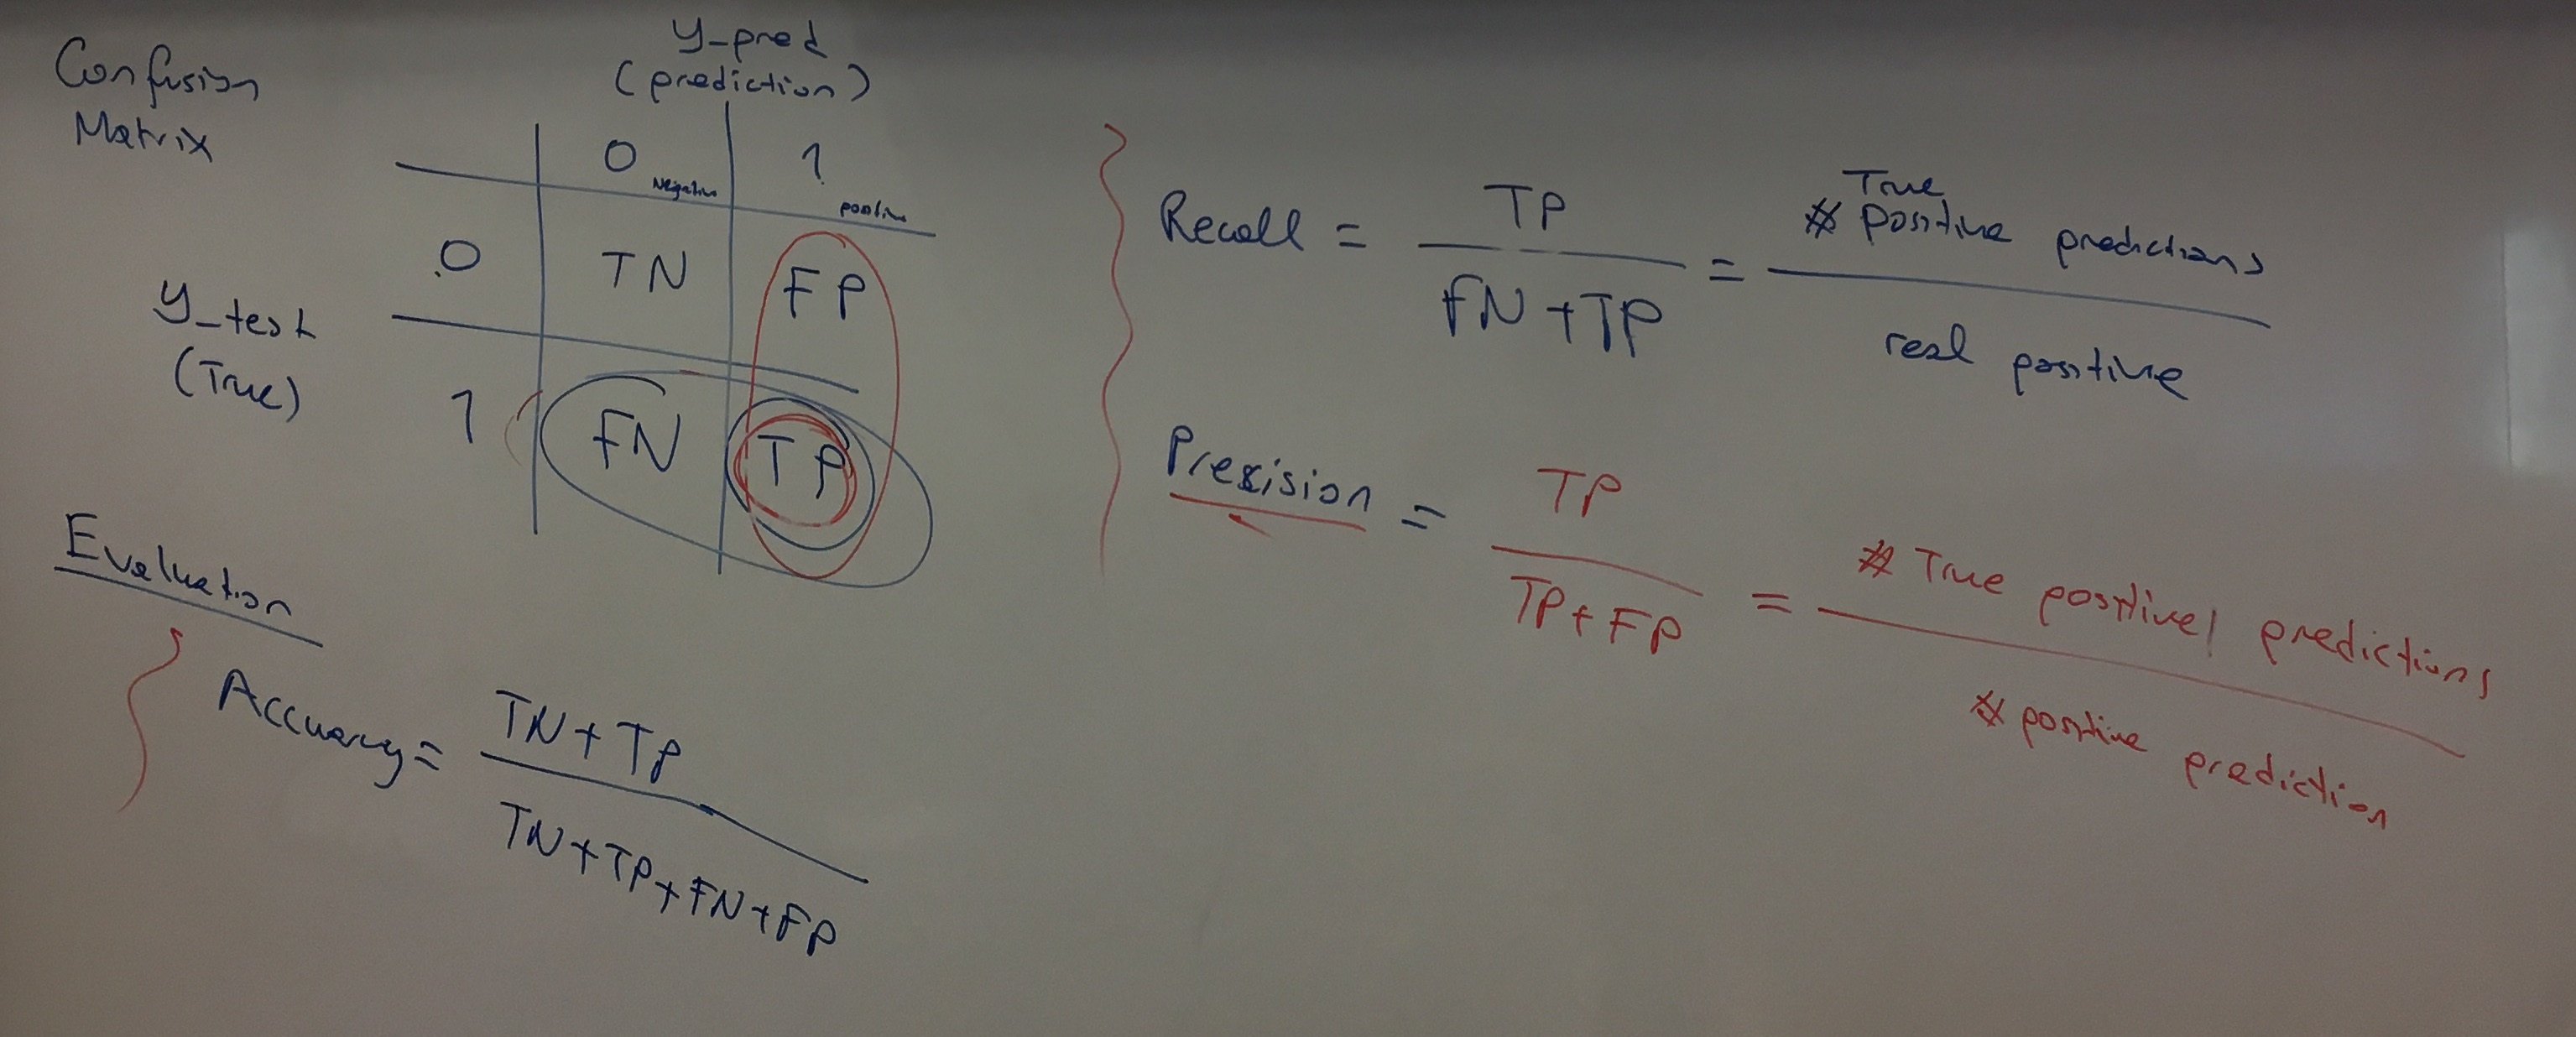 Confusion
Matrix
y_pred
(prediction)
0 Negative 1 positive
0 TN FP
y_test
(True)
1 FN TP
Evaluation
Accuracy = TN + TP
TN + TP + FN + FP
Recall = TP = # True positive predictions
FN + TP real positive
Precision = TP = # True positive predictions
TP + FP # positive prediction